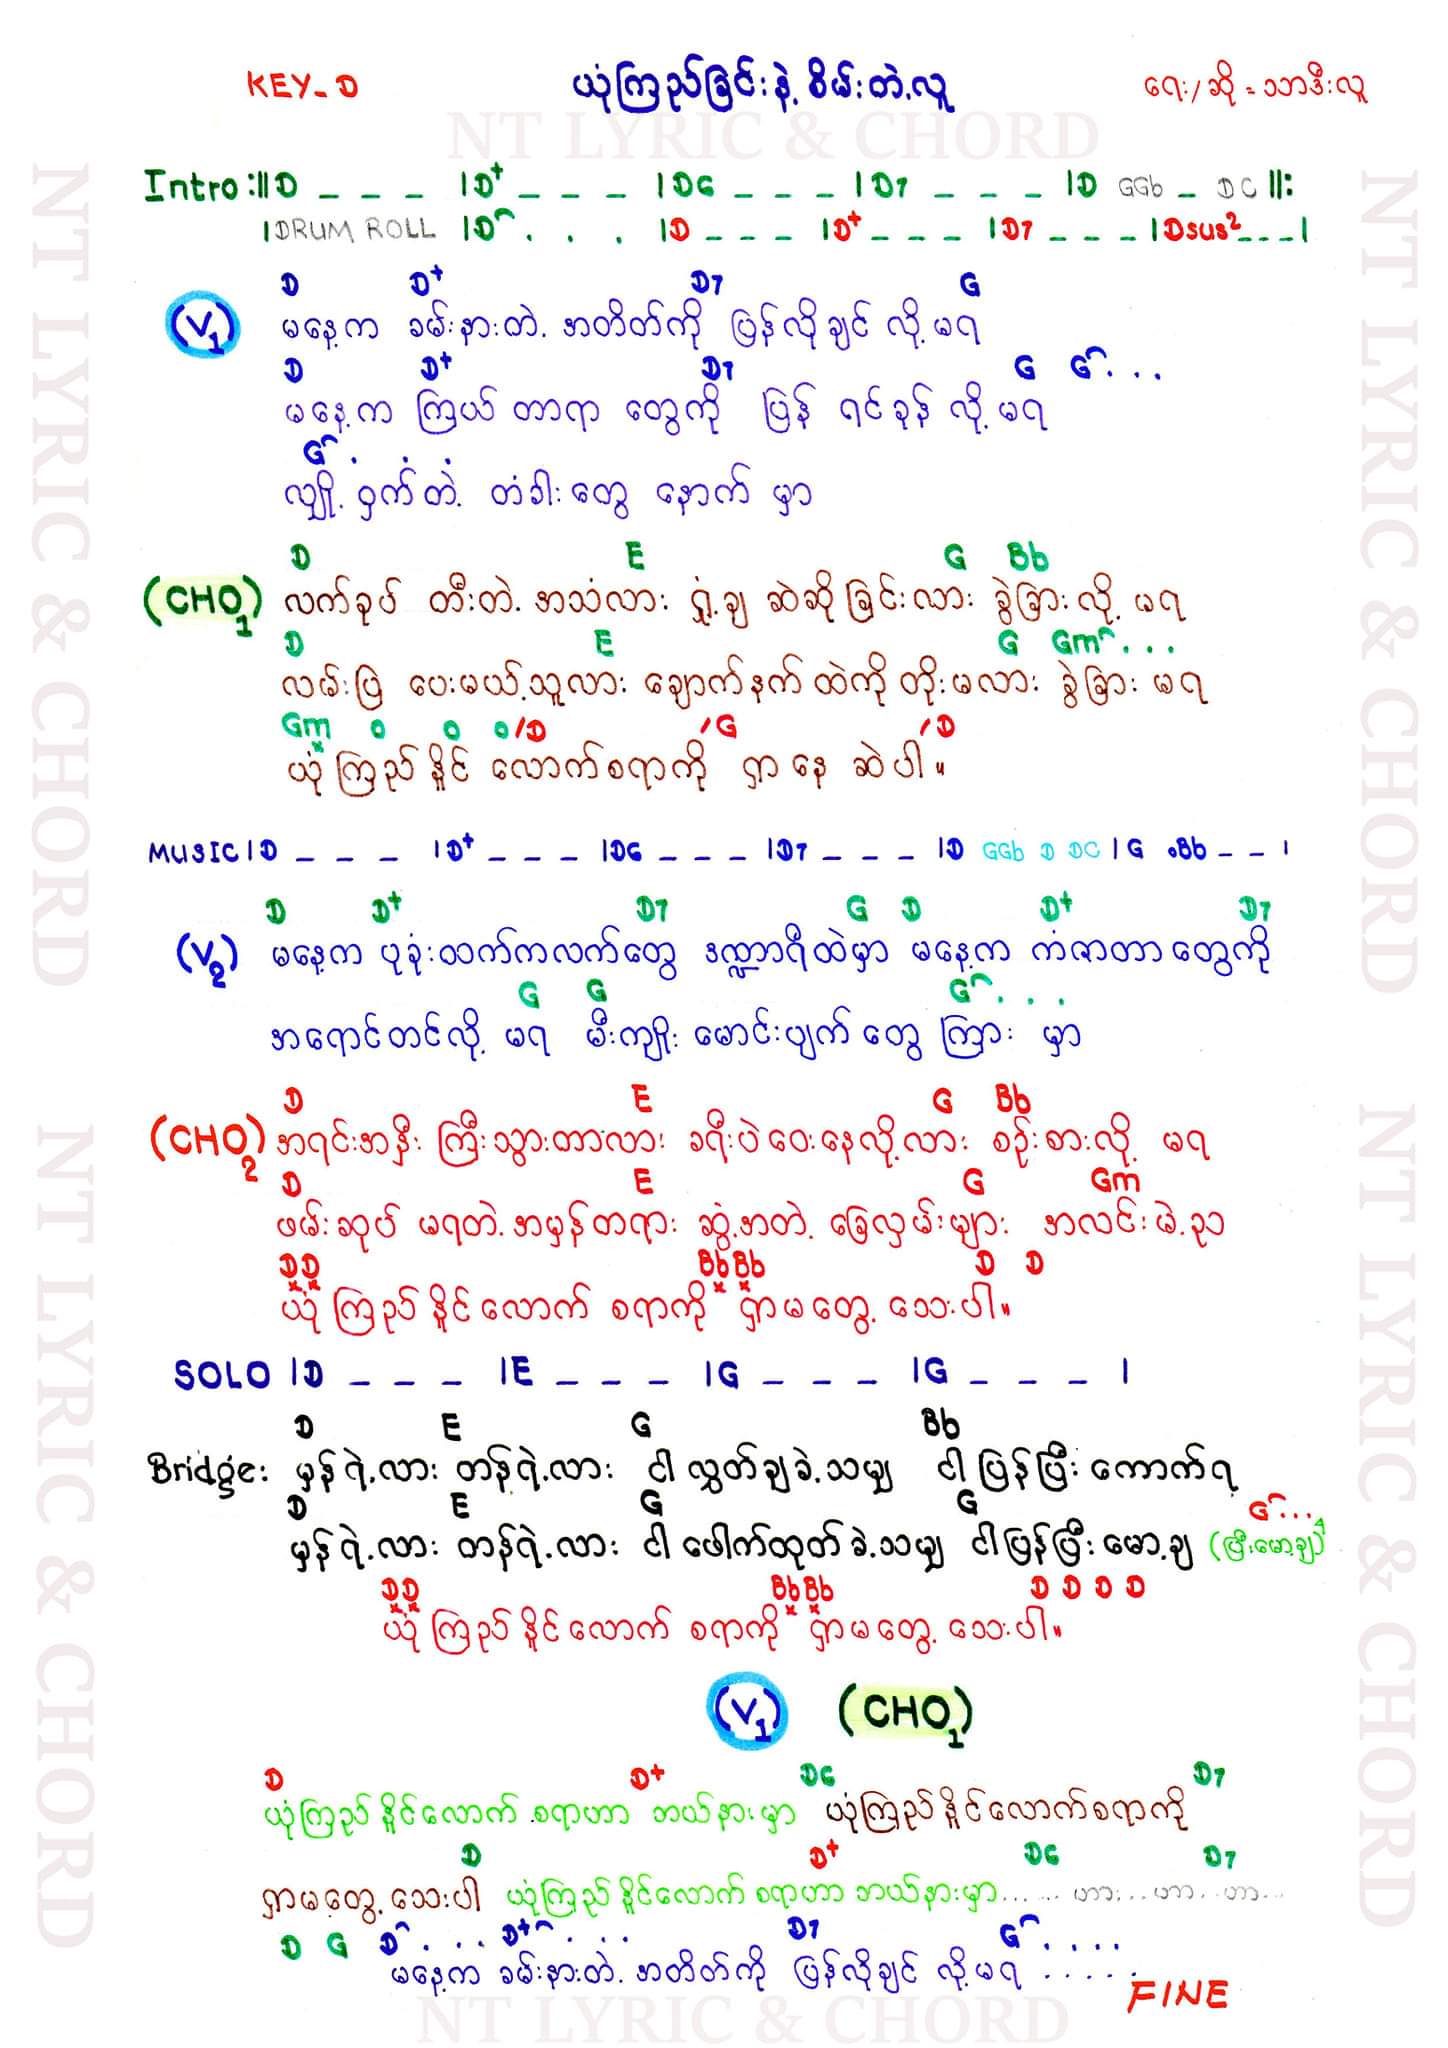 KEY_D ယုံကြည်ခြင်းနဲ့ စိမ်းတဲ့လူ ရေး/ဆို = သာဒီးလူ
NT LYRIC & CHORD
Intro :|| D _ _ _ | D+ _ _ _ | D6 _ _ _ | D7 _ _ _ | D GGb _ DC ||:
| DRUM ROLL | D . . . | D _ _ _ | D+ _ _ _ | D7 _ _ _ | Dsus2 _ _ _ |
D D+ D7 G
(V1) မနေ့က ခမ်းနားတဲ့ အတိတ်ကို ပြန်လိုချင် လို့ မရ
D D+ D7 G G . . .
မနေ့က ကြယ် တာရာ တွေကို ပြန် ရင်ခုန် လို့ မရ
G . . .
လျှို့ ဝှက် တဲ့ တံခါး တွေ နောက် မှာ
D E G Bb
(CHO1) လက်ခုပ် တီးတဲ့ အသံလား ရှုံ့ချ ဆဲဆို ခြင်းလား ခွဲခြား လို့ မရ
D E G Gm . . .
လမ်းပြ ပေးမယ့်သူလား ချောက်နက် ထဲကို တိုးမလား ခွဲခြား မရ
Gm o o o /D /G /D
ယုံ ကြည် နိူင် လောက်စရာကို ရှာ နေ ဆဲပါ ။
MUSIC | D _ _ _ | D+ _ _ _ | D6 _ _ _ | D7 _ _ _ | D GGb D DC | G .Bb _ _ |
D D+ D7 G D D+ D7
(V2) မနေ့က ပုခုံးထက်ကလက်တွေ ဒဏ္ဍာရီထဲမှာ မနေ့က ကံဇာတာ တွေကို
G G G . . .
အရောင်တင်လို့ မရ မီးကျိုး မောင်းပျက် တွေ ကြား မှာ
D E G Bb
(CHO2) အရင်းအနှီး ကြီးသွားတာလား ခရီးပဲ ဝေးနေလို့လား စဉ်းစားလို့ မရ
D E G Gm
ဖမ်းဆုပ် မရတဲ့ အမှန်တရား ဆွံ့အတဲ့ ခြေလှမ်းများ အလင်းမဲ့ည
DD BbBb D D
ယုံ ကြည် နိူင် လောက် စရာကို ရှာ မတွေ့ သေးပါ။
SOLO | D _ _ _ | E _ _ _ | G _ _ _ | G _ _ _ |
D E G Bb
Bridge: မှန် ရဲ့လား တန်ရဲ့လား ငါ လွှတ်ချခဲ့သမျှ ငါ ပြန်ပြီး ကောက်ရ
D E G G G . . .
မှန် ရဲ့လား တန်ရဲ့လား ငါ ဖေါက်ထုတ်ခဲ့သမျှ ငါပြန်ပြီး မော့ချ (ပြီးမော့ချ)
DD BbBb D D D D
ယုံ ကြည် နိူင် လောက် စရာကို ရှာမတွေ့ သေးပါ။
(V1) (CHO1)
D D+ D6 D7
ယုံကြည် နိူင်လောက် စရာဟာ ဘယ်နားမှာ ယုံကြည် နိူင်လောက်စရာကို
D D+ D6 D7
ရှာမတွေ့ သေးပါ ယုံကြည် နိူင်လောက် စရာဟာ ဘယ်နားမှာ...... ဟာ...ဟာ...ဟာ...
D G D . . . D+ . . . D7 G . . . .
မနေ့က ခမ်းနားတဲ့ အတိတ်ကို ပြန်လိုချင် လို့ မရ . . . . .
FINE
NT LYRIC & CHORD
NT LYRIC & CHORD
NT LYRIC & CHORD
NT LYRIC & CHORD
NT LYRIC & CHORD